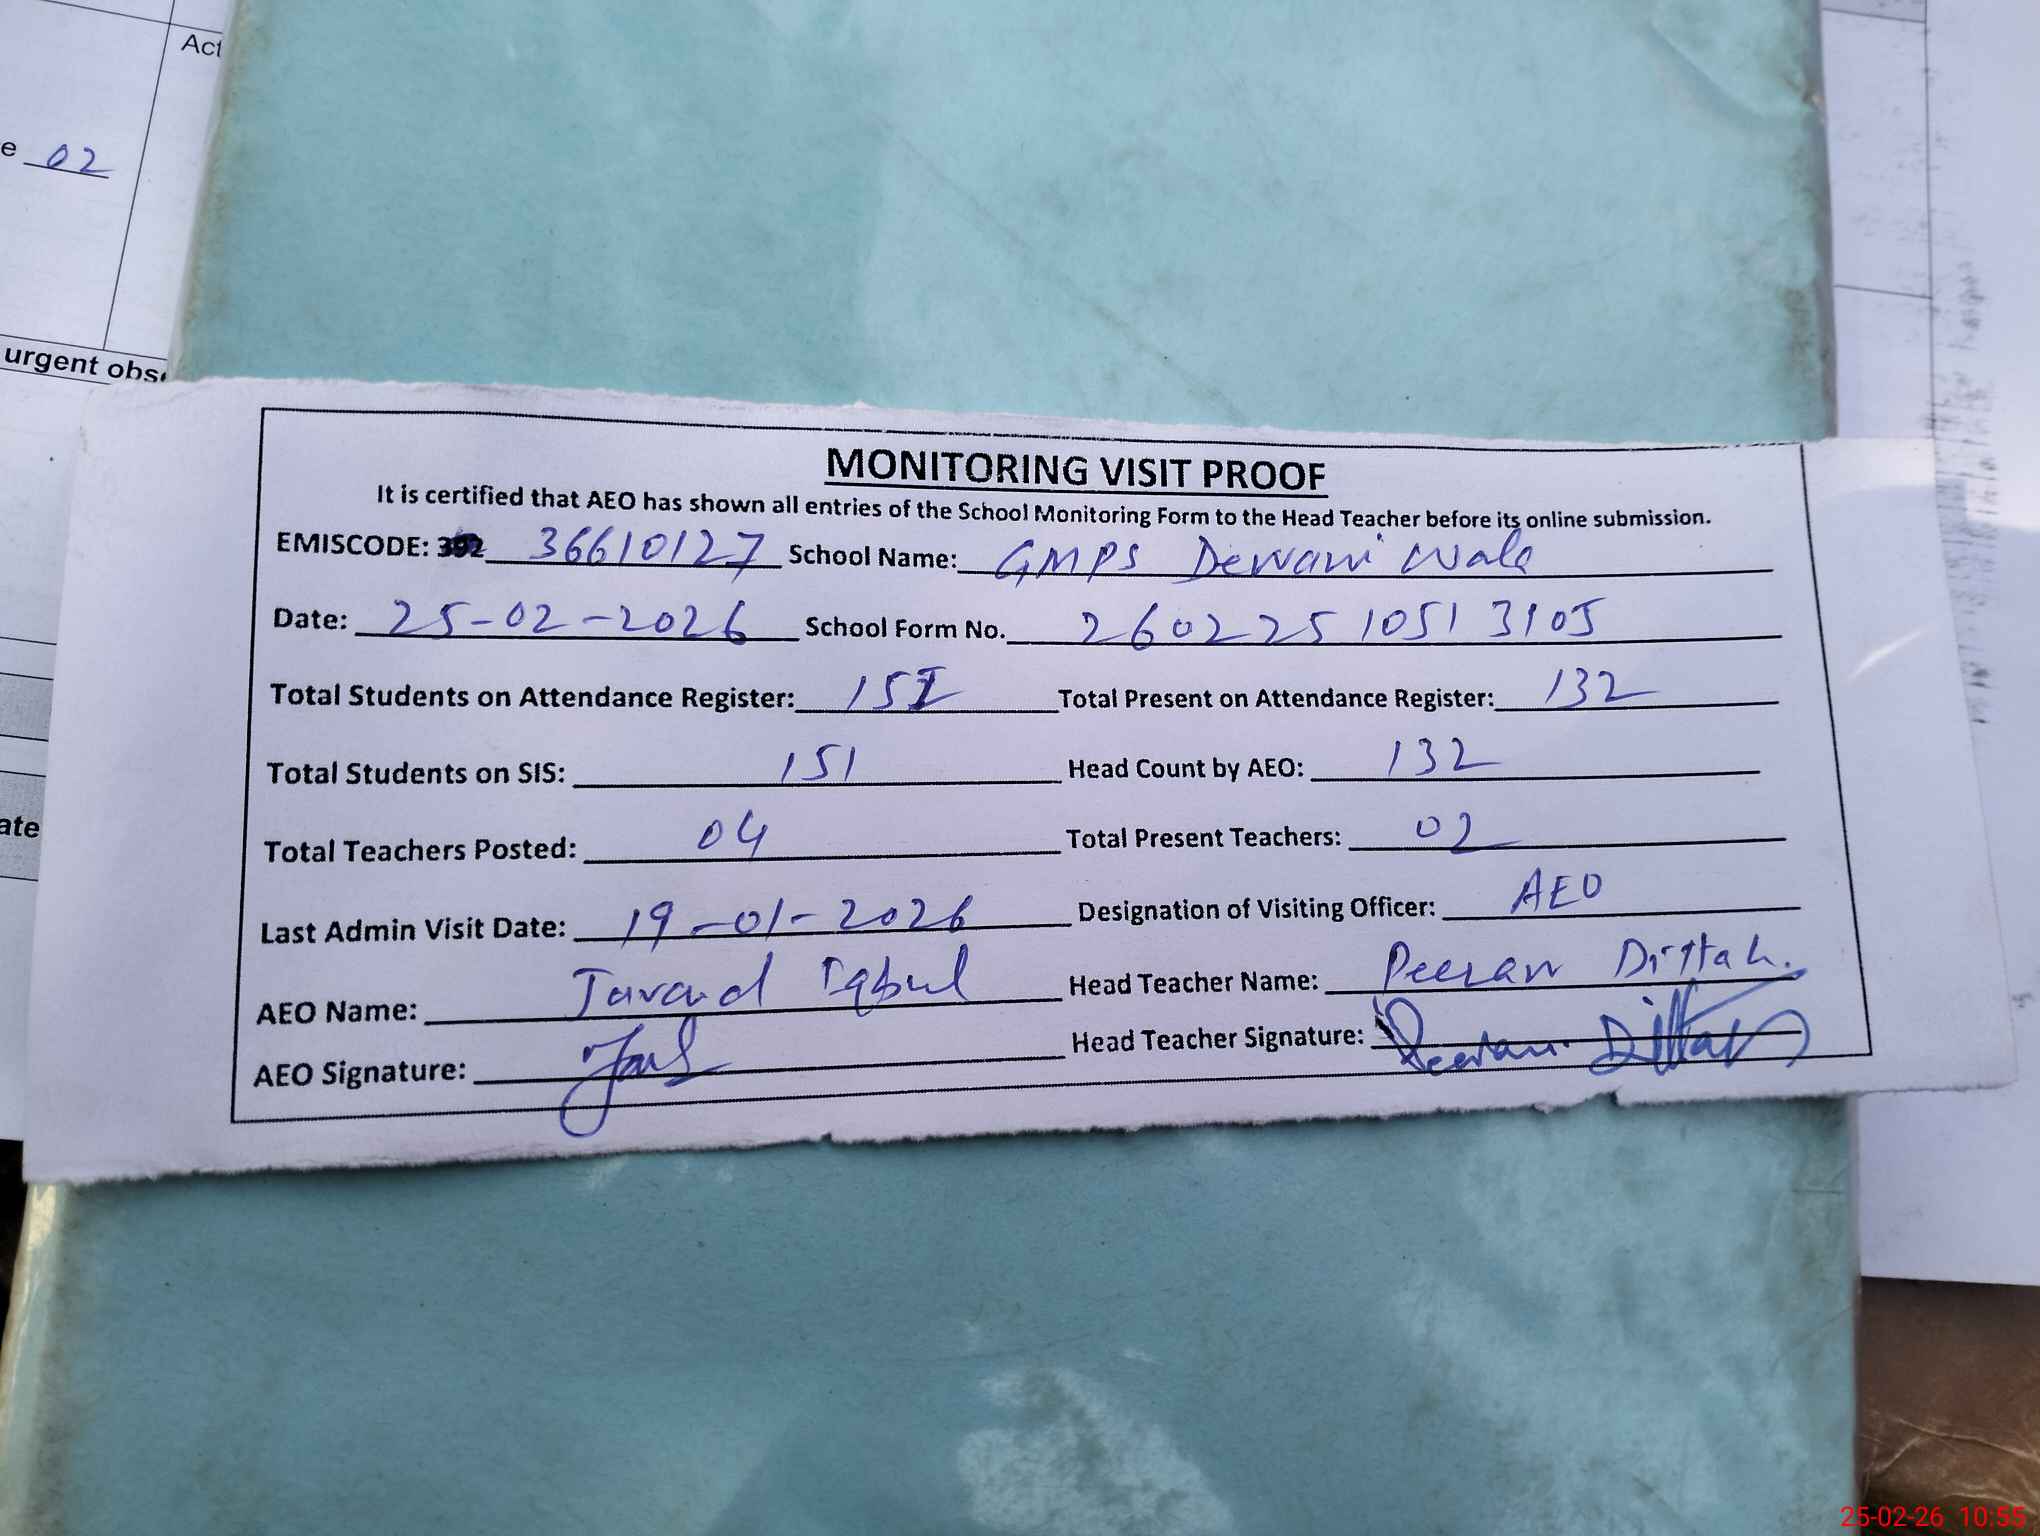 Act
e 02
urgent obs
ate
MONITORING VISIT PROOF
It is certified that AEO has shown all entries of the School Monitoring Form to the Head Teacher before its online submission.
EMISCODE: 36610127 School Name: GMPS Dewani Wala
Date: 25-02-2026 School Form No. 26022510513105
Total Students on Attendance Register: 151 Total Present on Attendance Register: 132
Total Students on SIS: 151 Head Count by AEO: 132
Total Teachers Posted: 04 Total Present Teachers: 02
Last Admin Visit Date: 19-01-2026 Designation of Visiting Officer: AEO
AEO Name: Javaid Iqbal Head Teacher Name: Peeran Dittah.
AEO Signature: Head Teacher Signature: Peeran Dittah
25-02-26 10:55